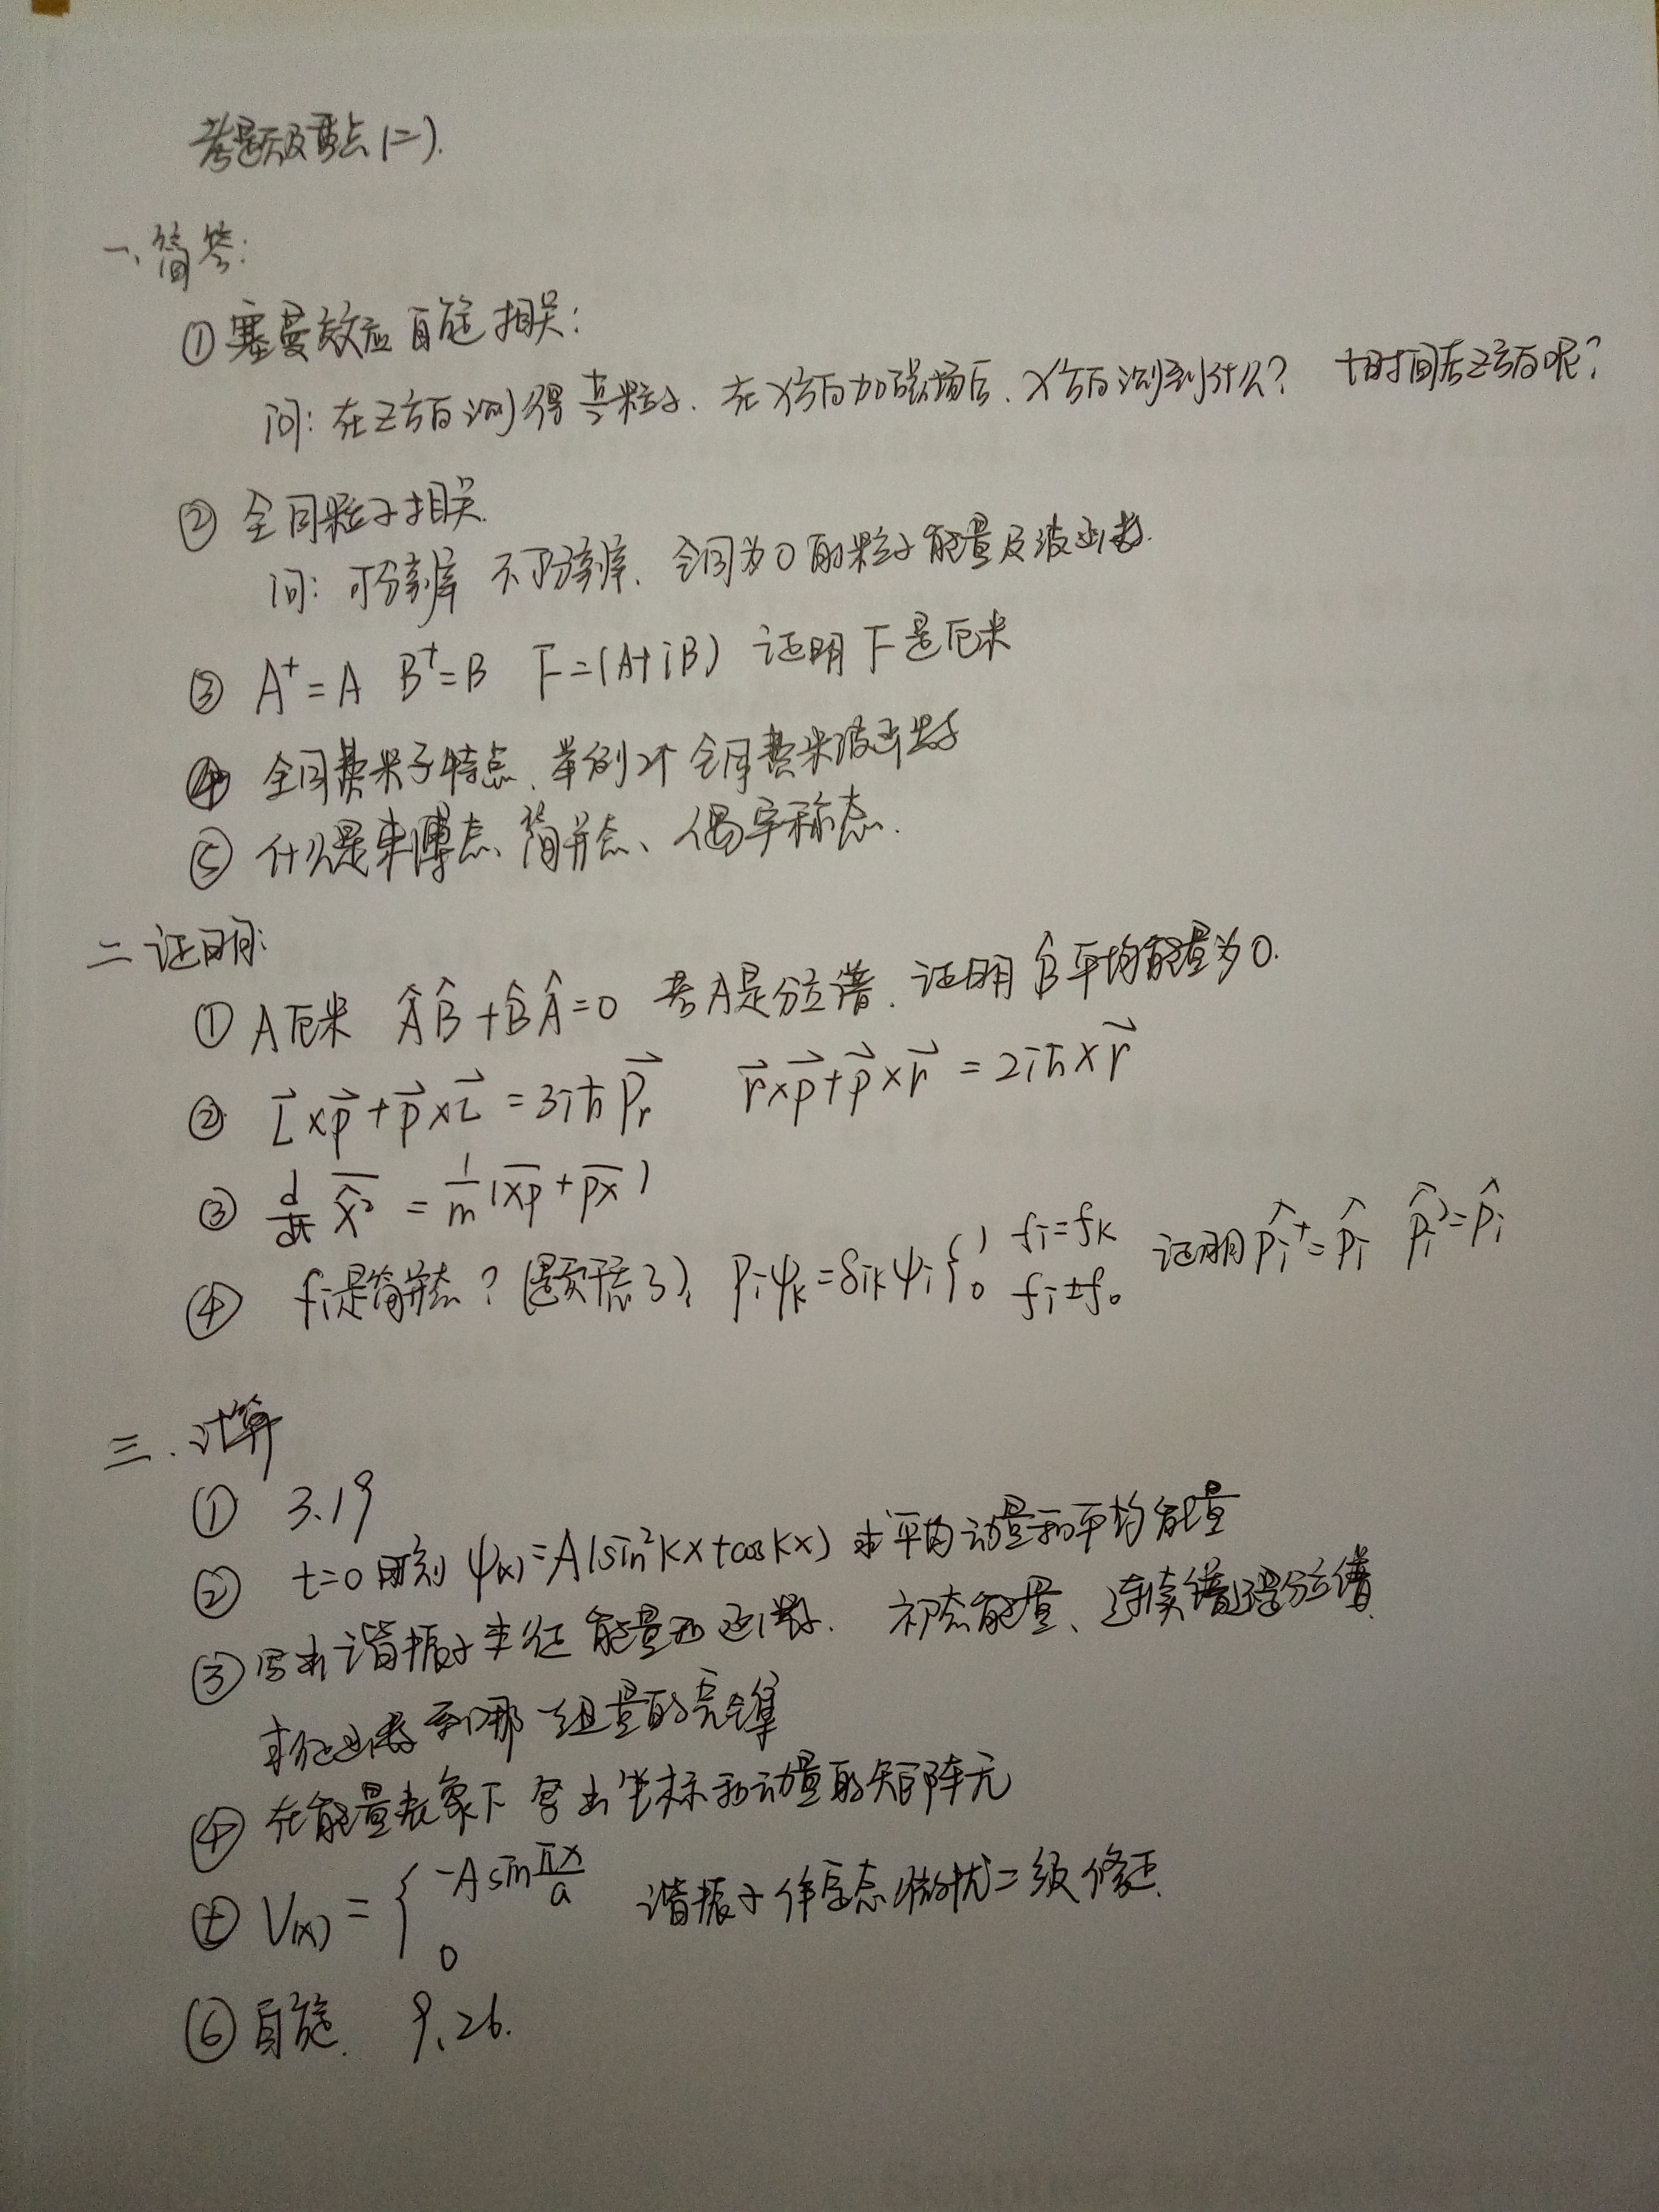 考题及重点(二).
一、简答:
①塞曼效应 自旋 相关:
问: 在Z方向测得 粒子. 在X方向加磁场后、X方向测到什么? t时间后Z方向呢?
② 全同粒子相关.
问: 可分辨 不可分辨、全同为0的粒子能量及波函数.
③ A⁺=A B⁺=B F=(A+iB) 证明F是厄米
④ 全同费米子特点、举例2个全同费米波函数
⑤ 什么是束缚态、简并态、偶宇称态.
二 证明:
① A厄米 ÂB̂+B̂Â=0 若A是分立谱、证明B̂平均能量为0.
② L⃗×p⃗+p⃗×L⃗=3iħP⃗r r⃗×p⃗+p⃗×r⃗=2iħ×r⃗
③ d/dt x̂² = 1/m (xp+px)
④ fi是简并态?(题干忘了), Piψk=δikψi{1 fi=fk 0 fi±f₀ 证明p̂i⁺=p̂i p̂i²=p̂i
三.计算
① 3.19
② t=0时刻 ψ(x)=A(sin²kx+coskx) 求平均动量和平均能量
③写出谐振子本征能量和函数. 初态能量、连续谱还是分立谱.
本征函数 哪一组量的完全集
④在能量表象下 写出坐标和动量的矩阵元
⑤ V(x)= { -A sin πx/a 0 谐振子作 态微扰二级修正.
⑥自旋. 9.26.